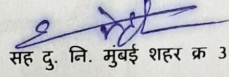 सह दु. नि. मुंबई शहर क्र 3